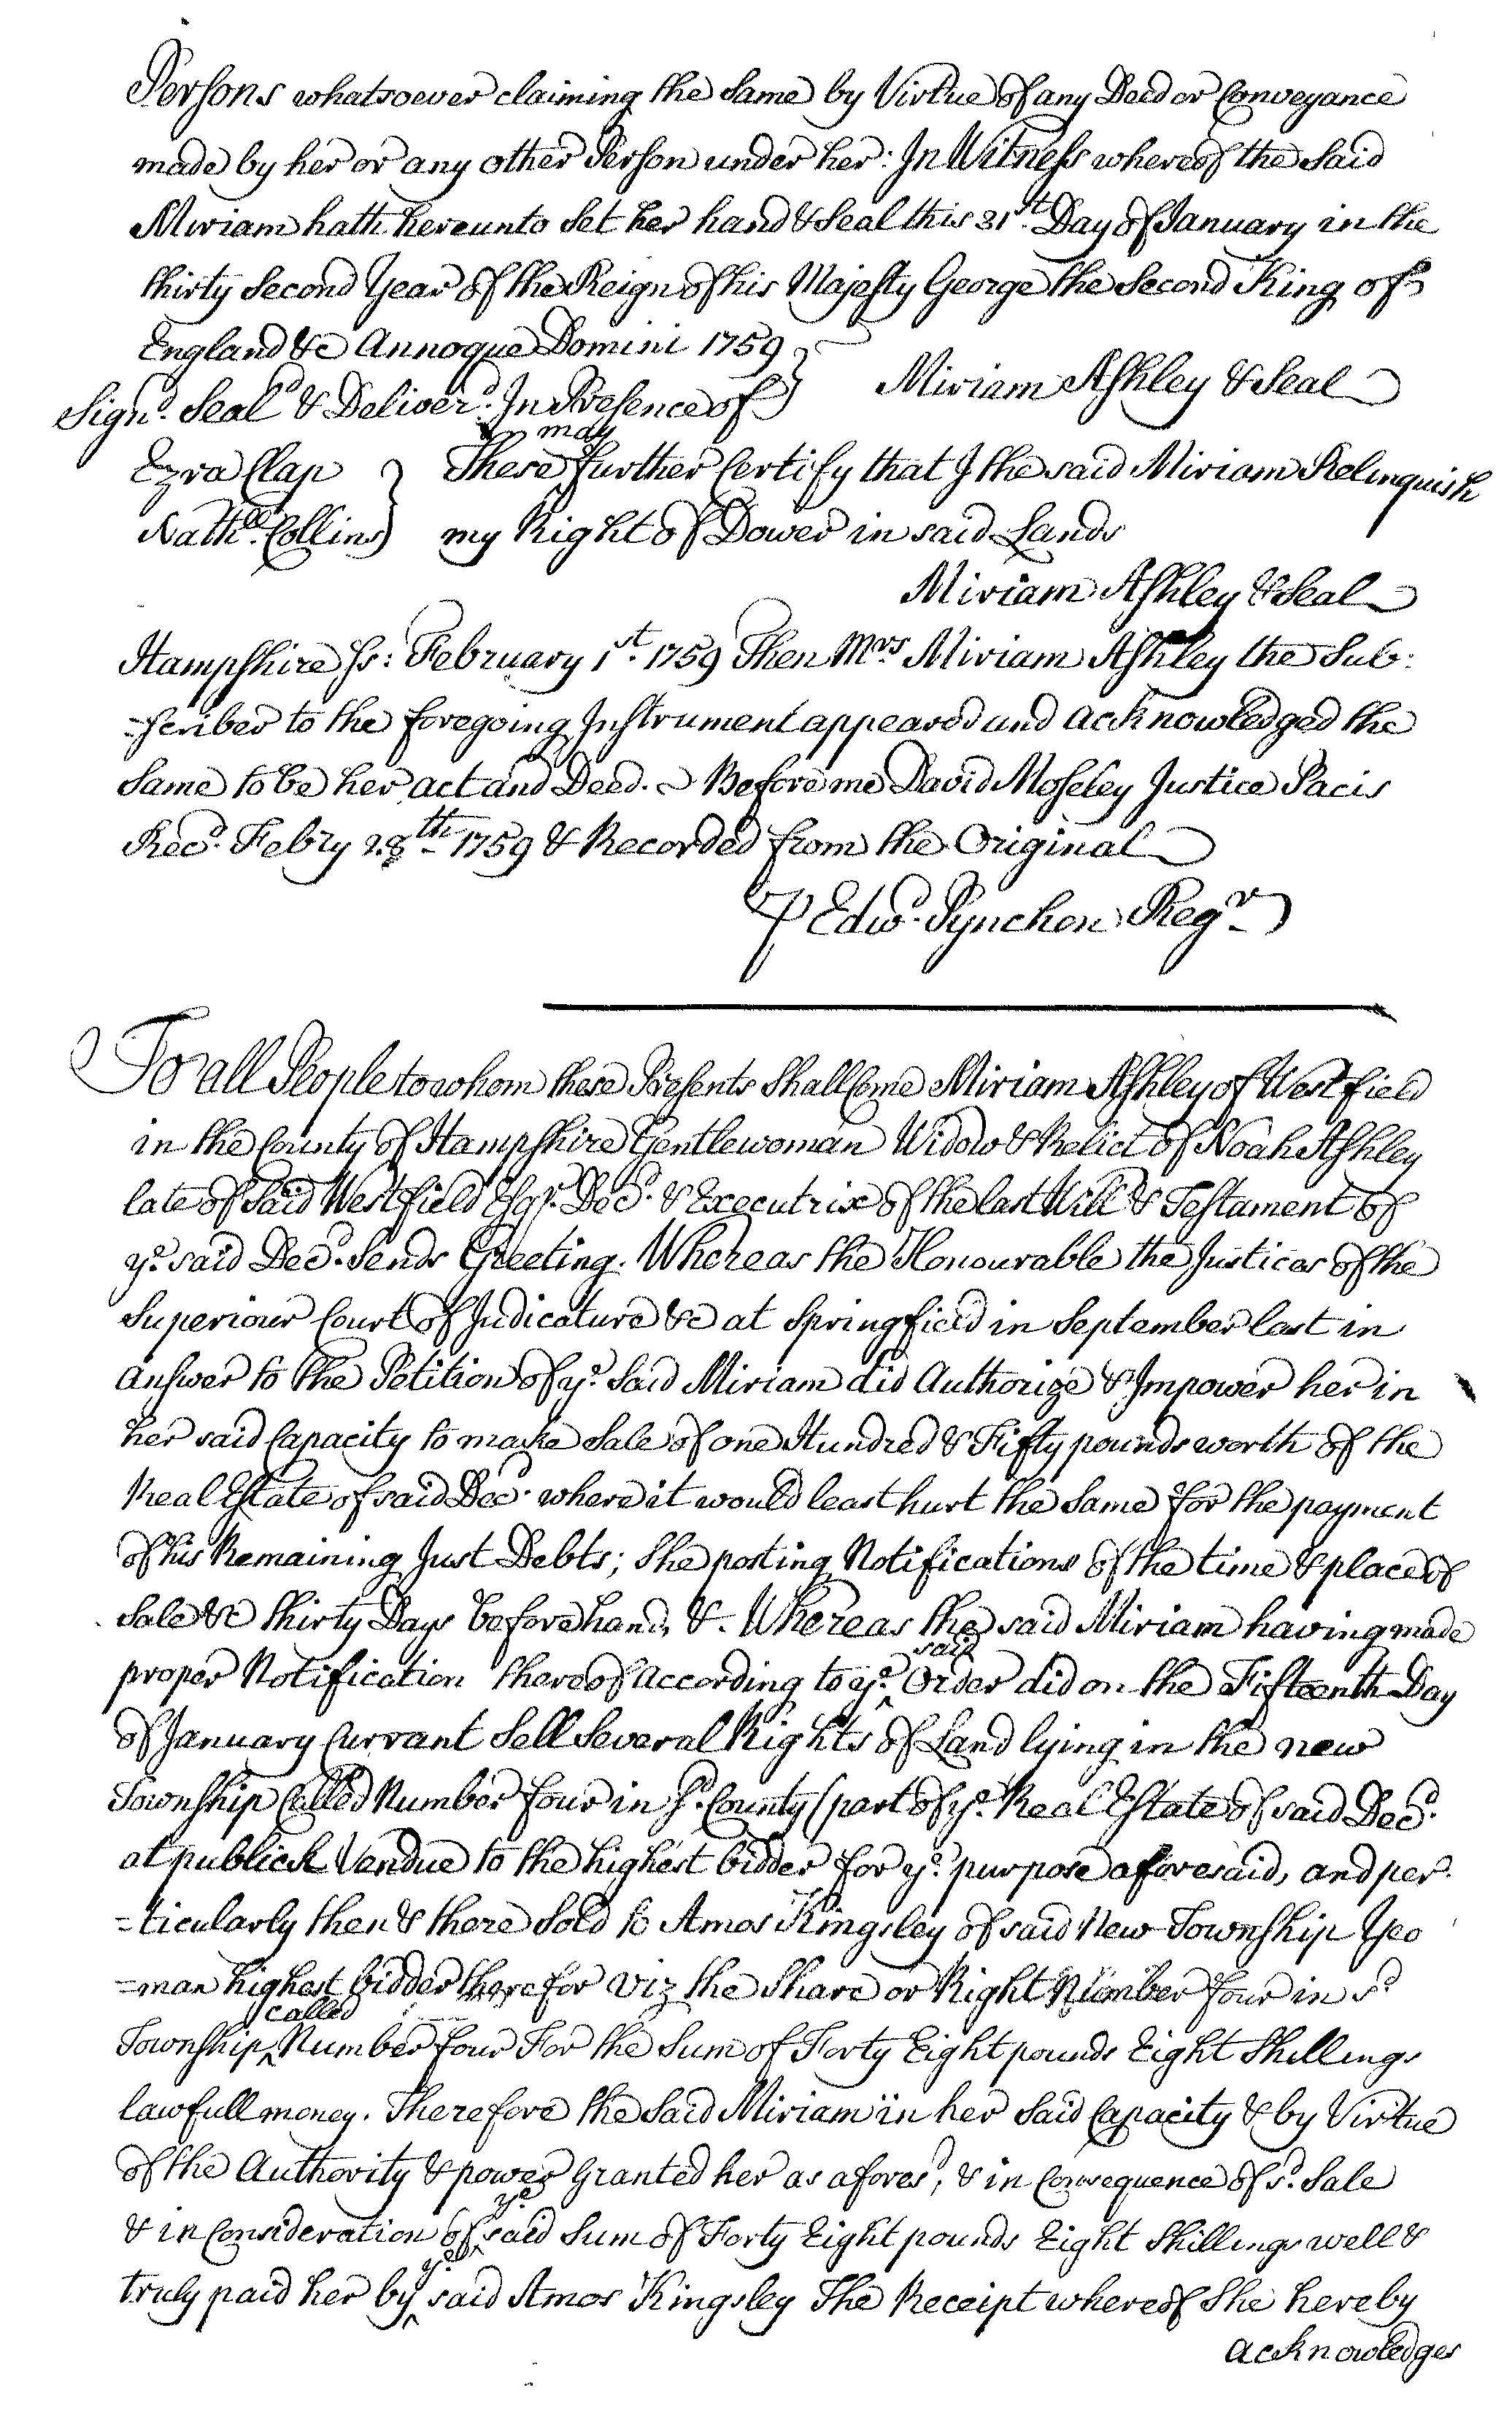 Persons whatsoever claiming the Same by Virtue of any Deed or Conveyance
made by her or any other Person under her: In Witness whereof the Said
Miriam hath hereunto Set her hand & Seal this 31st. Day of January in the
thirty Second Year of the Reign of his Majesty George the Second King of
England &c Annoque Domini 1759
Sign'd. Seal'd & Deliver'd. In Presence of } Miriam Ashley & Seal
may
Ezra Clap } These further Certify that I the said Miriam Relinquish
Nathll. Collins } my Right of Dower in said Lands
Miriam Ashley & Seal
Hampshire Ss: February 1st. 1759 Then Mrs Miriam Ashley the Sub:
-scriber to the foregoing Instrument appeared and acknowledged the
Same to be her act and Deed. Before me David Moseley Justice Pacis
Recd. Febry 28th 1759 & Recorded from the Original
P Edwd. Pynchon Regr
To all People to whom these Presents Shall Come Miriam Ashley of Westfield
in the County of Hampshire Gentlewoman Widow & Relict of Noah Ashley
late of Said Westfield Esqr. Decd. & Executrix of the last Will & Testament of
ye. said Decd. Sends Greeting. Whereas the Honourable the Justices of the
Superiour Court of Judicature &c at Springfield in September last in
answer to the Petition of ye. Said Miriam did Authorize & Impower her in
her said Capacity to make Sale of one Hundred & Fifty pounds worth of the
Real Estate of said Decd. where it would least hurt the Same for the payment
of his Remaining Just Debts; She posting Notifications of the time & place of
Sale &c thirty Days beforehand, &. Whereas the said Miriam having made
said
proper Notification thereof according to ye. Order did on the Fifteenth Day
of January Currant Sell Several Rights of Land lying in the new
Township Called Number four in sd. County (part of ye. Real Estate of said Decd.
at publick Vendue to the highest bidder for ye. purpose aforesaid, and per-
=ticularly then & there Sold to Amos Kingsley of said New Township Yeo
=man highest bidder therefor viz the Share or Right Number four in sd
called
Township Number four For the Sum of Forty Eight pounds Eight Shillings
lawfull money. Therefore the Said Miriam in her Said Capacity & by Virtue
of the Authority & power Granted her as afores'd, & in Consequence of sd. Sale
ye
& in Consideration of said Sum of Forty Eight pounds Eight Shillings well &
ye
truly paid her by said Amos Kingsley The Receipt whereof She hereby
acknowledges